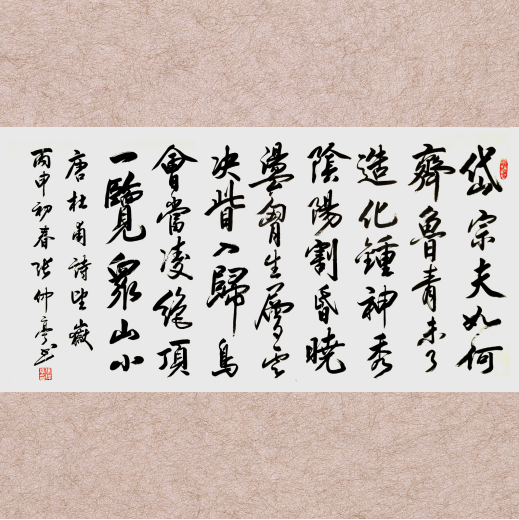 岱宗夫如何
齊魯青未了
造化鍾神秀
陰陽割昏曉
盪胷生層云
決眥入歸鳥
會當凌絕頂
一覽眾山小
唐杜甫詩望嶽
丙申初春张仲亭书